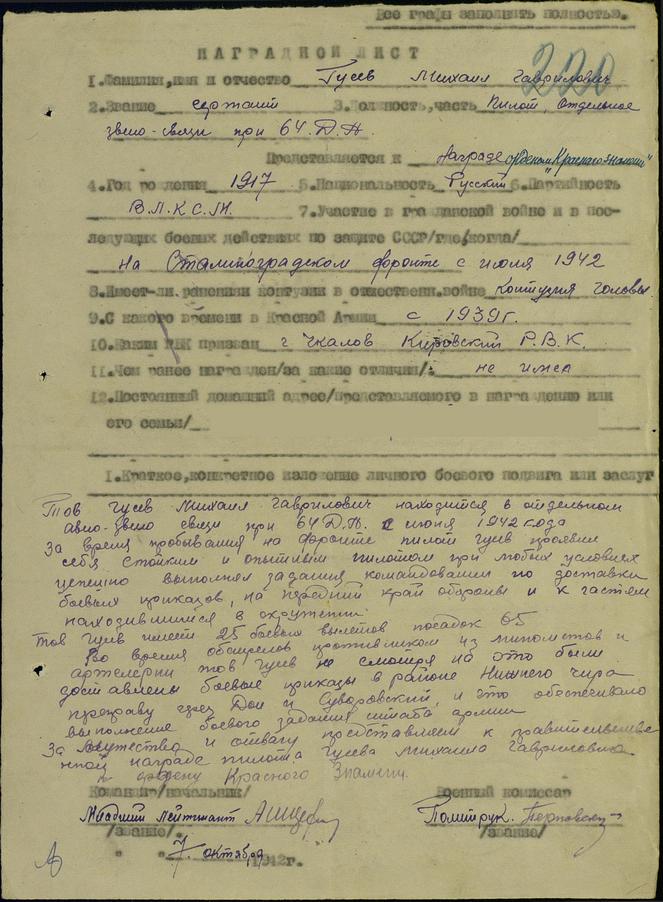 Все графы заполнить полностью.
220
НАГРАДНОЙ ЛИСТ
1.Фамилия,имя и отчество Гусев Михаил Гаврилович
2.Звание сержант 3.Должность,часть Пилот, Отдельное
звено-связи при 64 Д.А.
Представляется к награде орденом "Красного знамени"
4.Год рождения 1917 5.Национальность Русский 6.Партийность
В.Л.К.С.М. 7.Участие в гражданской войне и в пос-
ледующих боевых действиях по защите СССР/где,когда/
на Сталинградском фронте с июля 1942
8.Имеет-ли ранения и контузии в отечествен.войне контузия головы.
9.С какого времени в Красной Армии с 1939г.
10.Каким РВК призван г Чкалов Кировский Р.В.К.
11.Чем ранее награжден/за какие отличия/: не имеа
12.Постоянный домашний адрес/представляемого в награждению или
его семьи/
1.Краткое,конкретное изложение личного боевого подвига или заслуг
Тов Гусев Михаил Гаврилович находится в отдельном
авио-звено связи при 64 Д.А. с июня 1942 года
За время пробывания на фронте пилот Гусев проевил
себя стойким и опытным пилотом при любых условиях
успешно выполнял задания командования по доставки
боевых приказов, на передний край обороны и к частям
находившимся в окружении.
Тов Гусев имеет 25 боевых вылетов посадок 65
Во время обстрелов противником из минометов и
артелерии тов Гусев не смотря на это были
доставлены боевые приказы в районе Нижнего Чира
преправу чрез Дон и Суворовский, и это обеспечивало
выполнение боевого задания штаба армии
За мужества и отвагу представляем к правительстве
нной награде пилота Гусева Михаила Гавриловича
к ордену Красного Знамени.
Командир/начальник/ Военный комиссар
Младший лейтенант Политрук.
/звание/ /звание/
" 7 " октября 1942г.